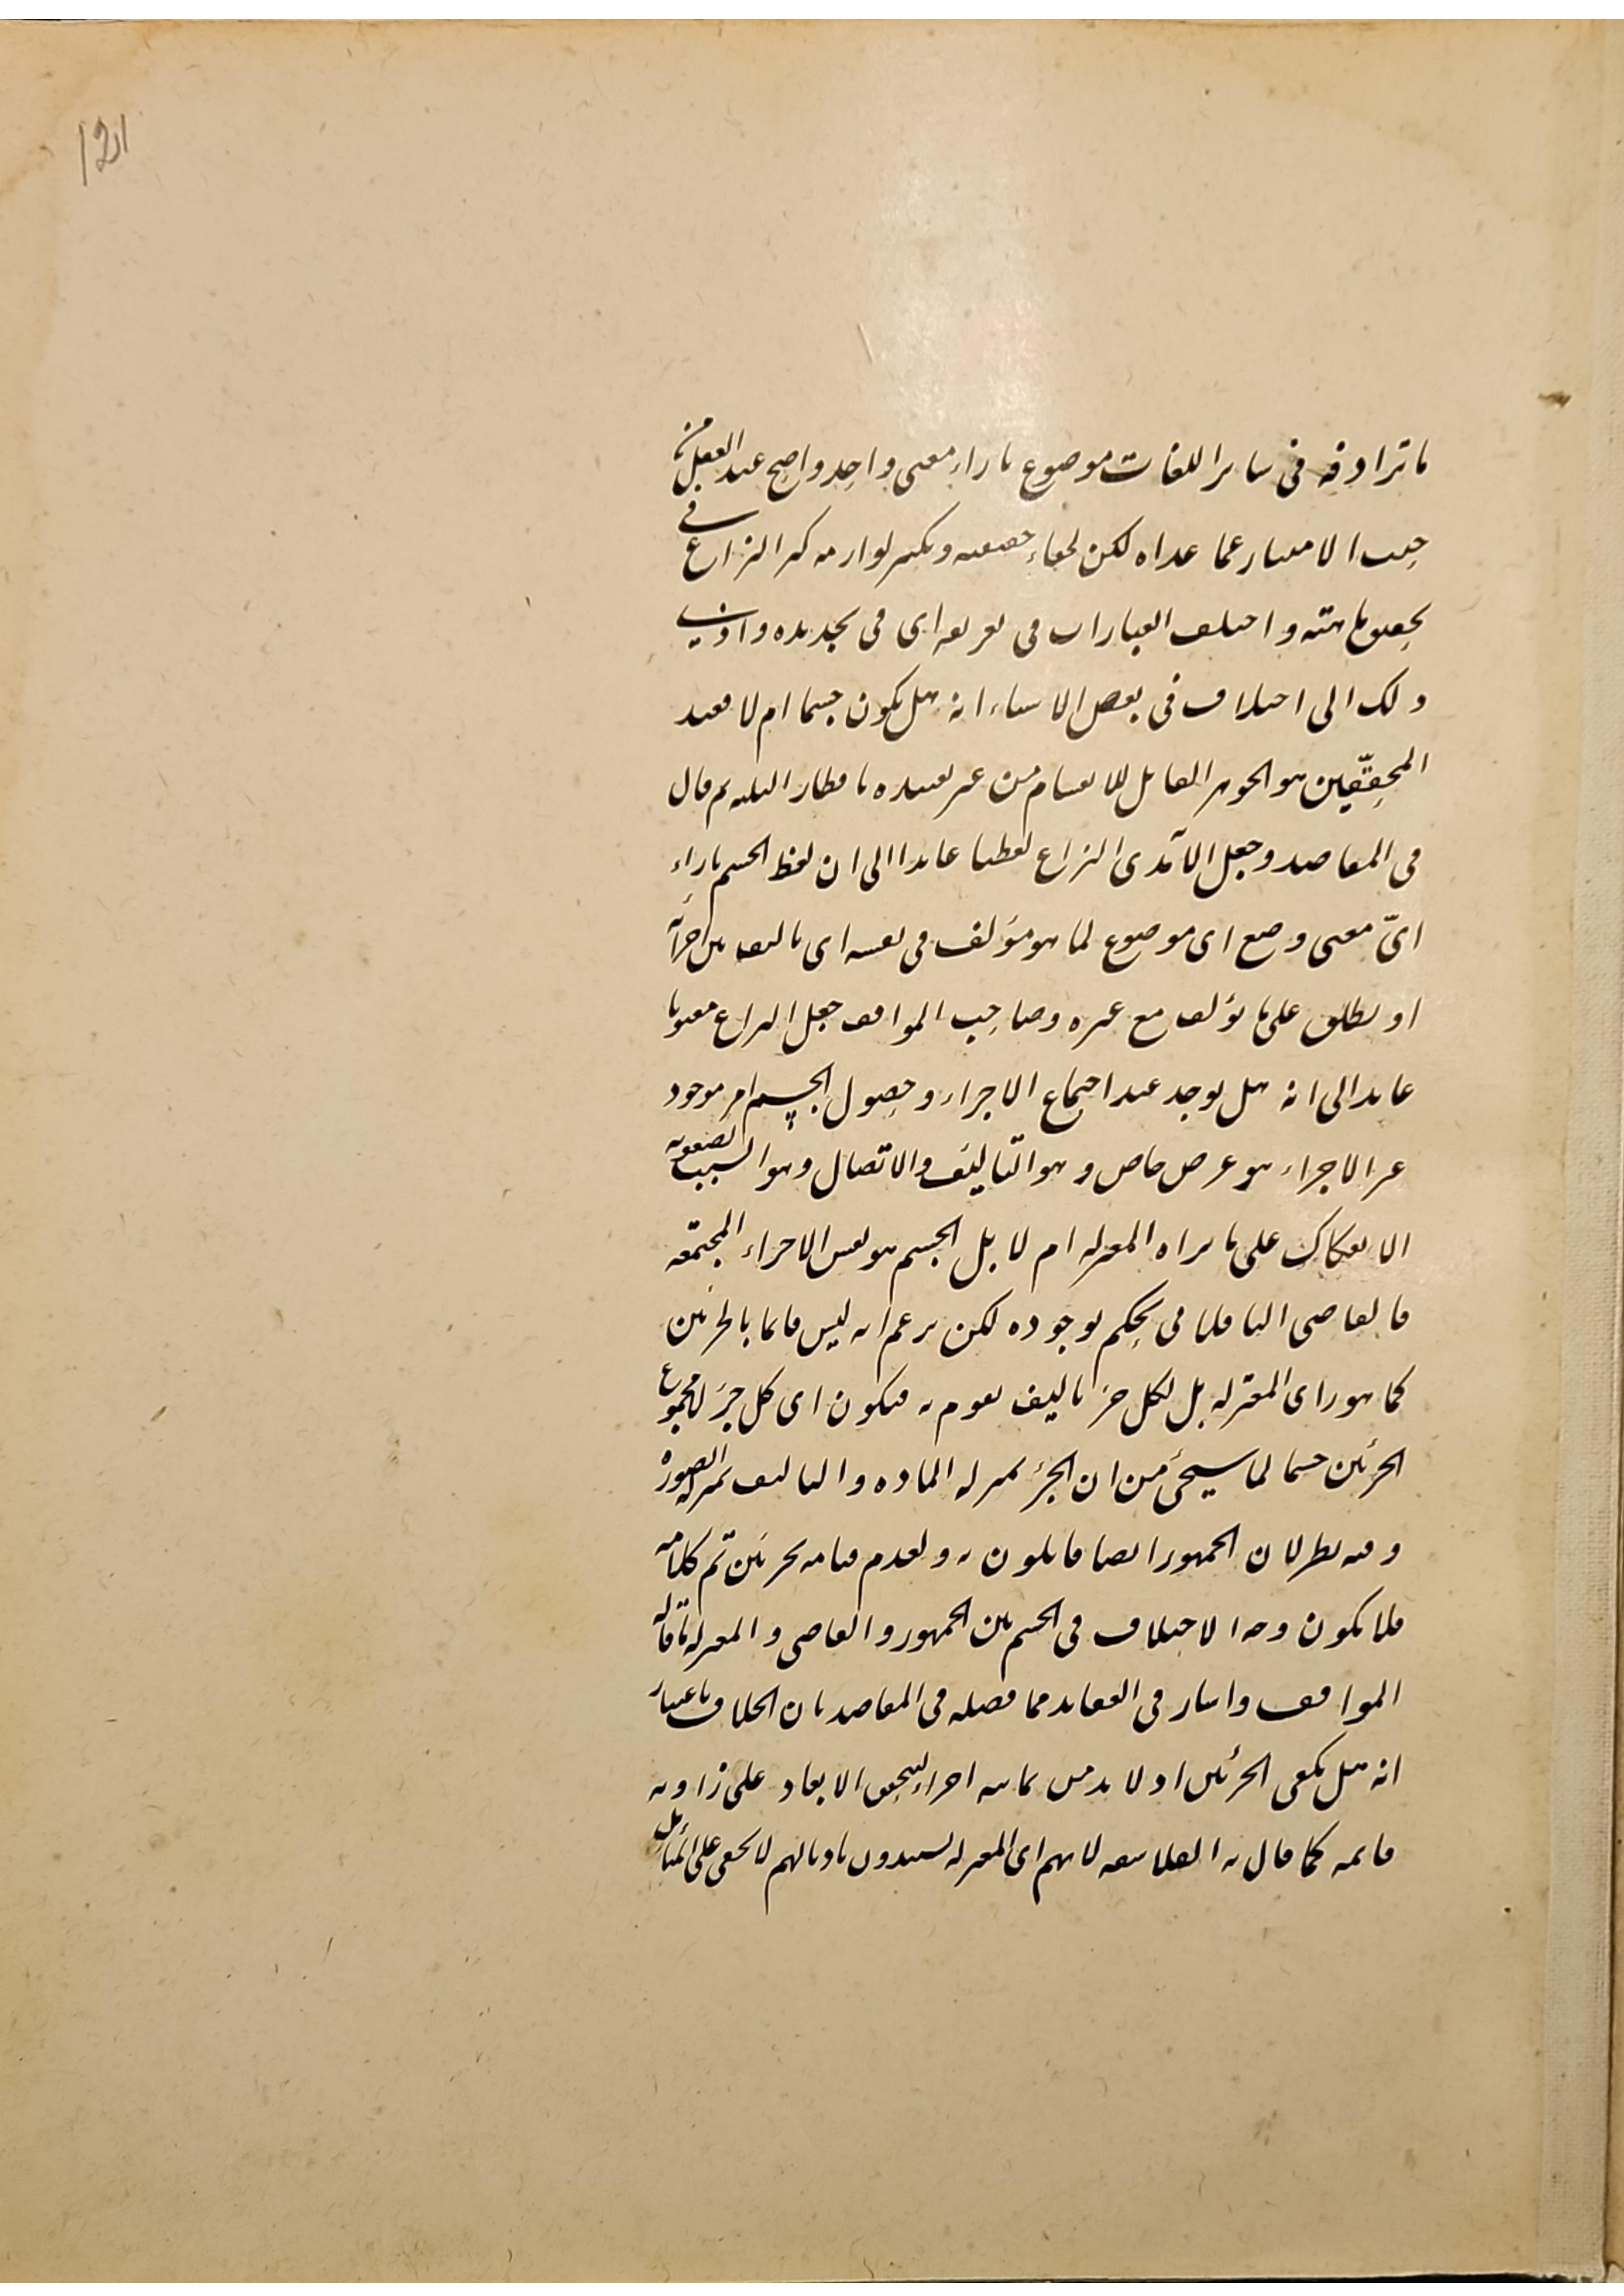 121
ما ترادفه فى ساير اللغات موضوع بازاء معنى واحد واضح عند العقل من
حيث الامتياز عما عداه لكن لخفاء حقيقته وتكثر لوازمه كثر النزاع فى
تحقيق ماهيته واختلف العبارات فى تعريفه اى فى تحديده وادى
ذلك الى اختلاف فى بعض الاشياء انه هل يكون جسما ام لا فعند
المحققين هو الجوهر القابل للانقسام من غير تقييده باقطار الثلثه ثم قال
فى المقاصد وجعل الآمدى النزاع لفظيا عايدا الى ان لفظ الجسم بازاء
اىّ معنى وضع اى موضوع لما هو مؤلف فى نفسه اى تاليف بين اجزائه
او يطلق على ما يؤلف مع غيره وصاحب المواقف جعل النزاع معنويا
عايدا الى انه هل يوجد عند اجتماع الاجزاء وحصول الجسم امر موجود
غير الاجزاء هو عرض خاص وهو التّاليف والاتصال وهو السبب لصعوبه
الانفكاك على ما يراه المعتزله ام لا بل الجسم هو نفس الاجزاء المجتمعه
فالقاضى الباقلانى يحكم بوجوده لكن يزعم انه ليس قايما بالجزئين
كما هو راى المعتزله بل لكل جزء تاليف يقوم به فيكون اى كل جزء لا مجموع
الجزئين جسما لما سيجئ من ان الجزء بمنزله الماده والتاليف بمنزله الصوره
وفيه نظر لان الجمهور ايضا قايلون به وبعدم قيامه بجزئين تم كلامه
فلا يكون وجه الاختلاف فى الجسم بين الجمهور والقاضى والمعتزله ما قاله
المواقف واشار فى العقايد مما فصله فى المقاصد بان الخلاف باعتبار
انه هل يكفى الجزئين او لا بد من ثمانيه اجزاء ليتحقق الابعاد على زاويه
قايمه كما قال به الفلاسفه لانهم اى المعتزله لا يخفى على المتأمل